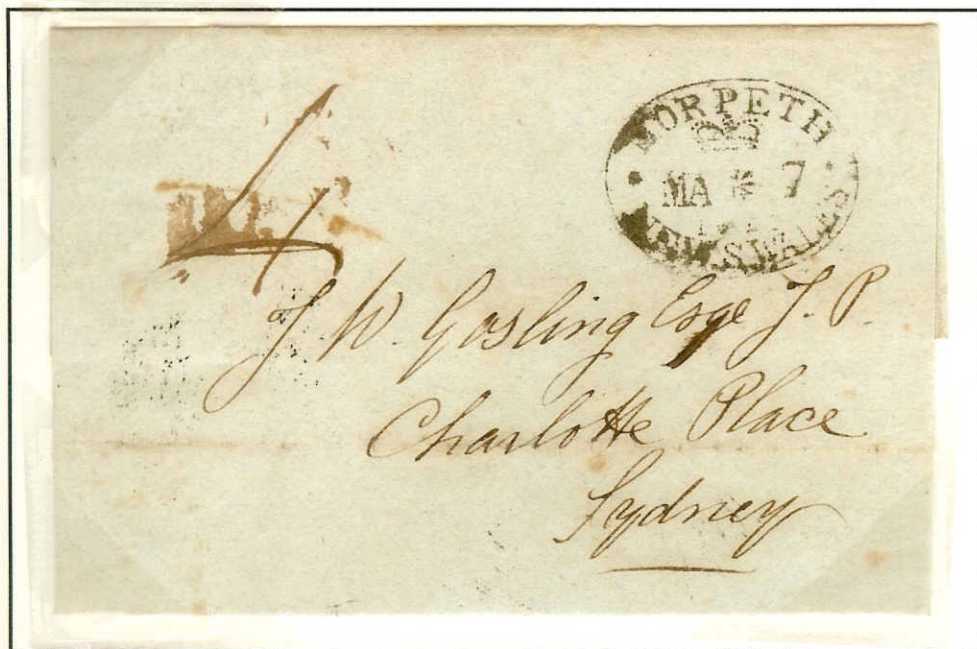 MORPETH
MA * 7
NEW.S.WALES
4
J W. Gosling Esqe J. P.
Charlotte Place
Sydney